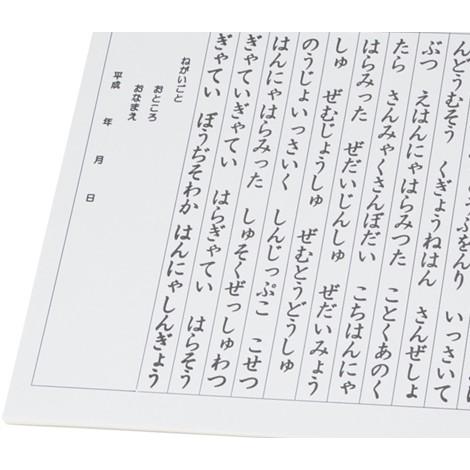 ふをんり いっさいて
んどうむそう くぎょうねはん さんぜしょ
ぶつ えはんにゃはらみつた ことくあのく
たら さんみゃくさんぼだい こちはんにゃ
はらみった ぜだいじんしゅ ぜだいみょう
しゅ ぜむじょうしゅ ぜむとうどうしゅ
のうじょいっさいく しんじっぷこ こせつ
はんにゃはらみった しゅそくぜっしゅわつ
ぎゃていぎゃてい はらぎゃてい はらそう
ぎゃてい ぼうぢそわか はんにゃしんぎょう
ねがいごと
おところ
おなまえ
平成 年 月 日